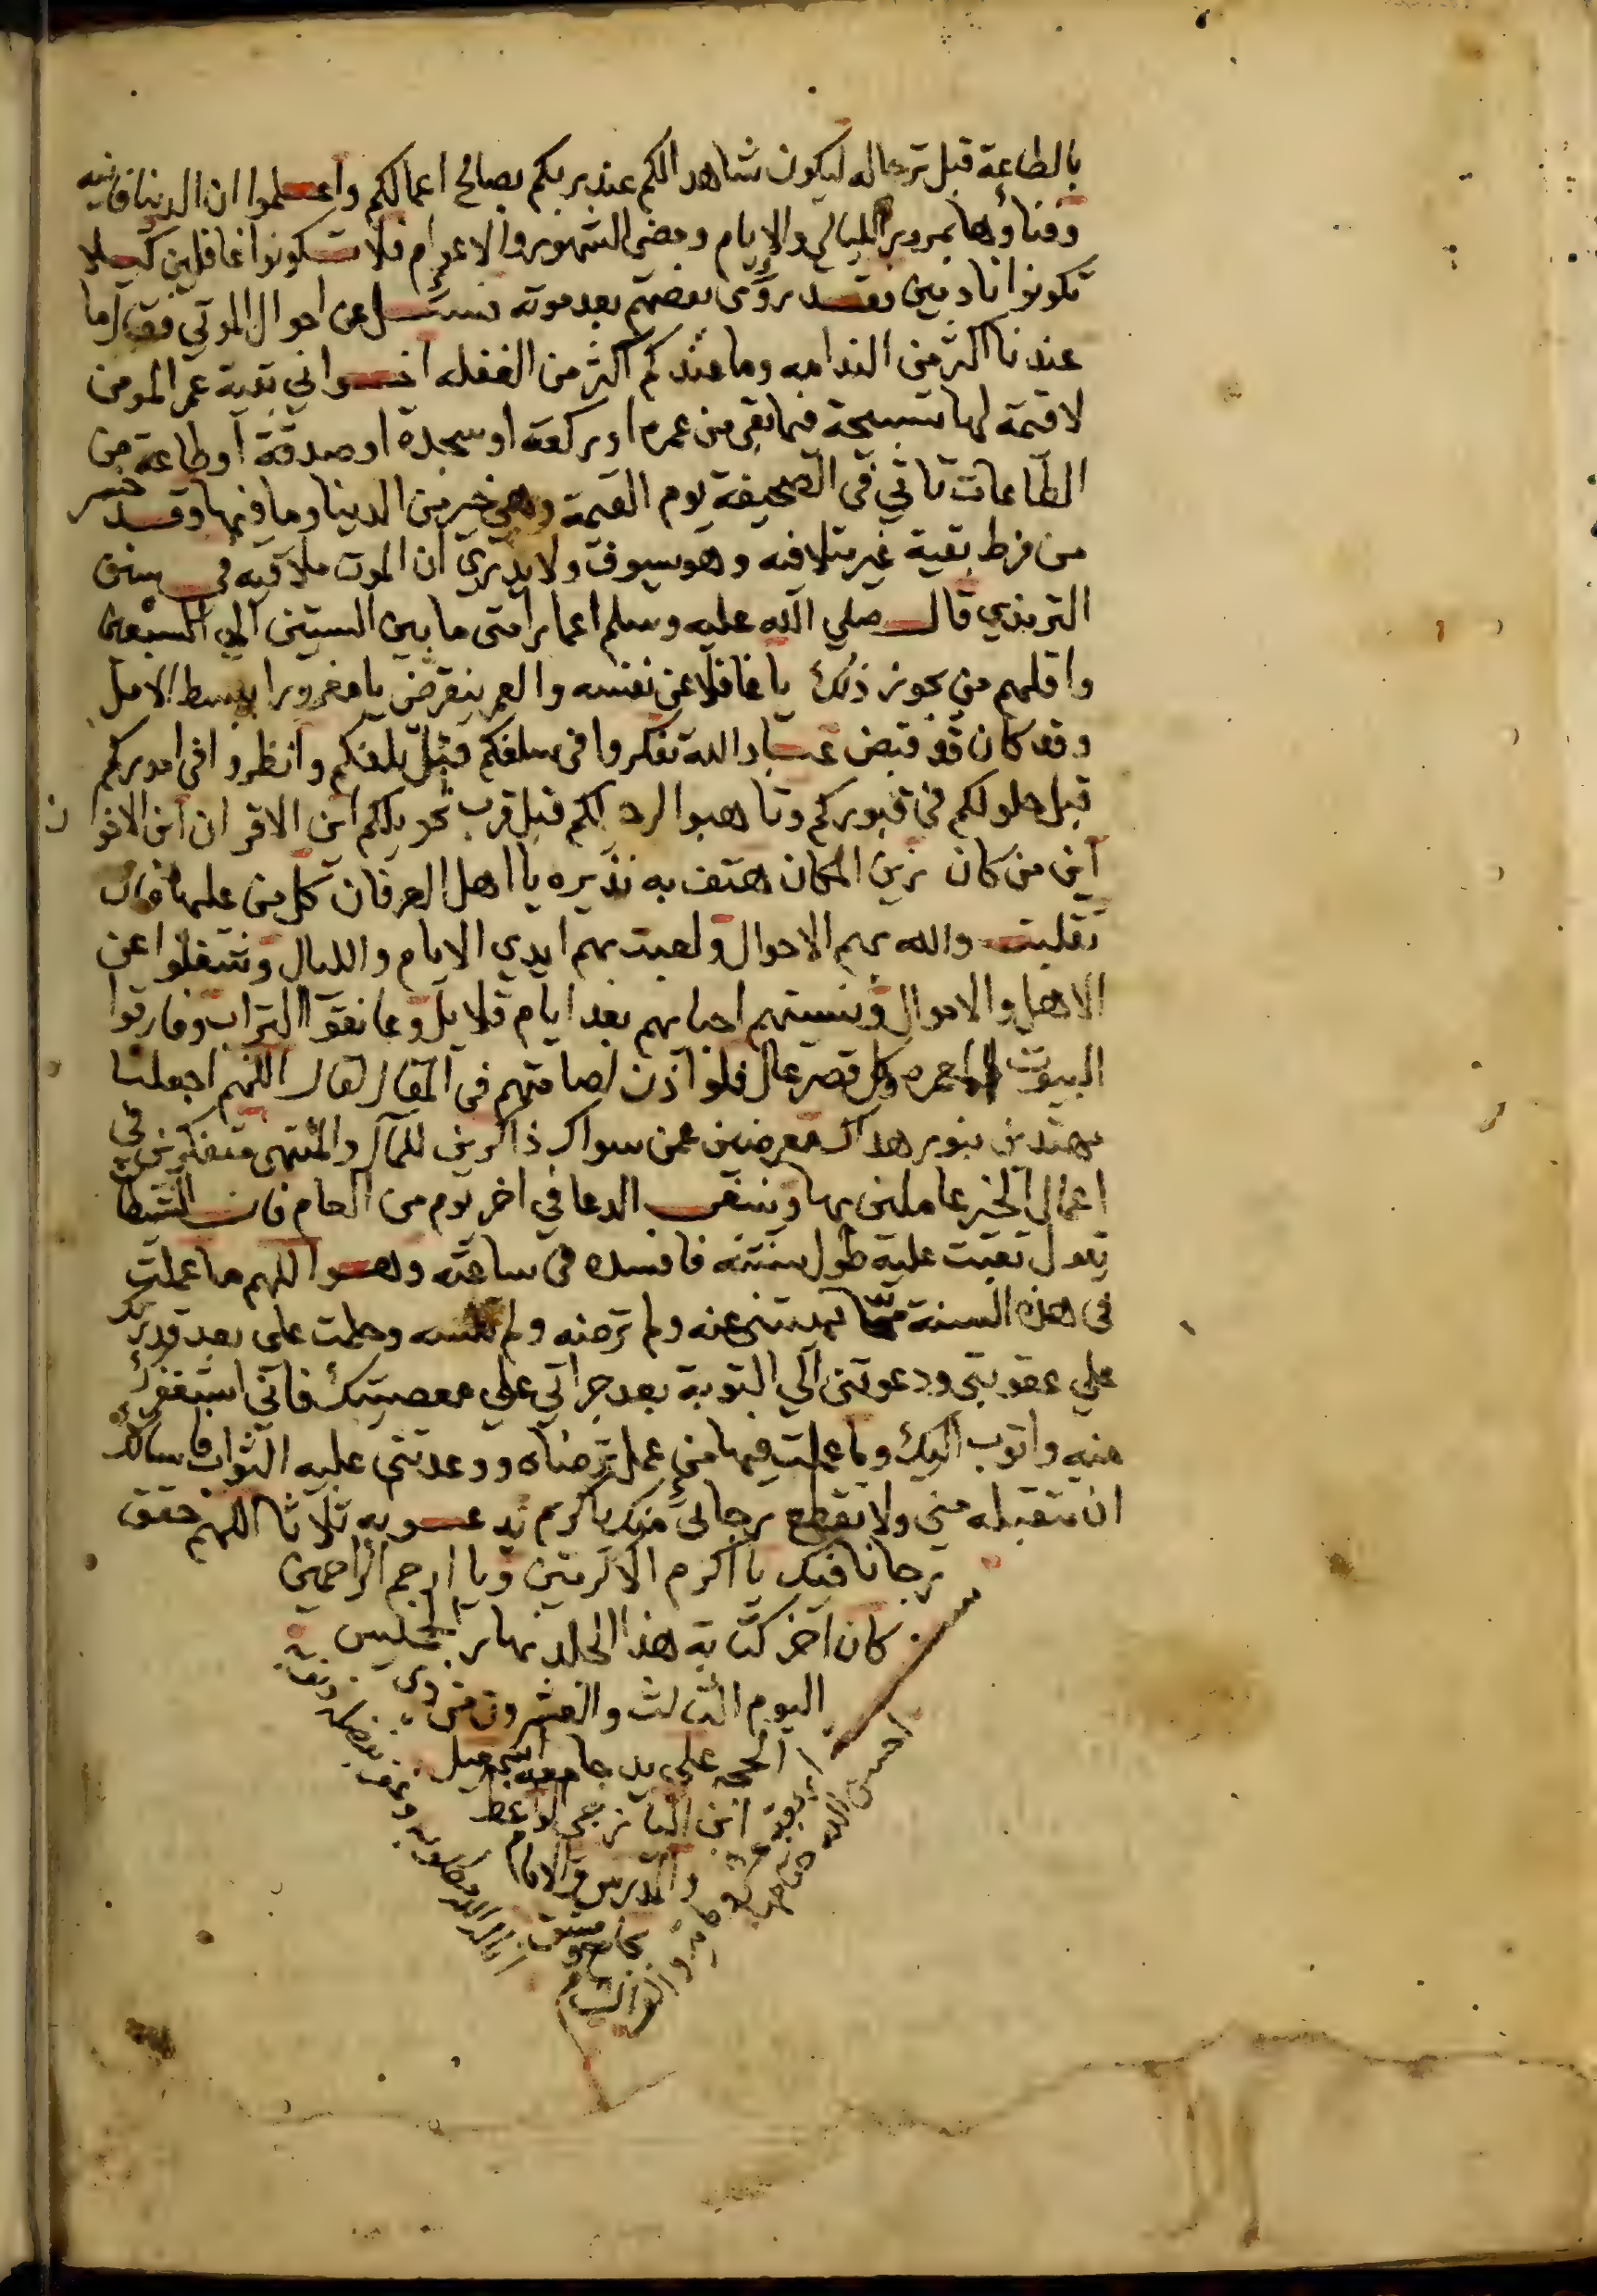 بالطاعة قبل ترحاله ليكون شاهدا لكم عند ربكم بصالح اعمالكم واعلموا ان الدنيا فانيه
وفناؤها بمرور الليالي والايام ومضي الشهور والاعوام فلا تكونوا غافلين كيلا
تكونوا نادمين فقد رؤى بعضهم بعد موته فسئل عن احوال الموتي فقال ما
عندنا اكثر من الندامه وما عندكم اكثر من الغفله اخواني بقية عمر المومن
لا قيمة لها تسبيحة فيما بقي من عمره او ركعة او سجدة او صدقة او طاعة من
الطاعات تاتي في الصحيفة يوم القيمة وهي خير من الدنيا وما فيها وقد خسر
من فرط بقية غير متلافيه وهو يسوف ولا يدري ان الموت ملاقيه في سنن
الترمذي قال صلي الله عليه وسلم اعمار امتى ما بين الستين الي السبعين
واقلهم من يجوز ذلك يا غافلا عن نفسه والعمر ينقرض يا مغرورا ببسط الامل
وقد كان قد قبض عباد الله تفكروا في سلفكم قبل تلفكم وانظروا في اموركم
قبل حلولكم في قبوركم وتاهبوا لرحيلكم قبل قرب تحويلكم اين الاقران اين الاخوان
اين من كان زين المكان هتف به نذيره يا اهل العرفان كل من عليها فان
تقلبت والله بهم الاحوال ولعبت بهم ايدي الايام والليال وشغلوا عن
الاهل والاموال ونسيتهم احبابهم بعد ايام قلايل وعانقوا التراب وفارقوا
البيوت العامره وكل قصر عال فلو اذن لصامتهم في المقال لقال اللهم اجعلنا
مهتدين بنور هداك معرضين عمن سواك ذاكرين للمآل والمنتهى متفكرين في
اعمال الخير عاملين بها وينبغي الدعا في اخر يوم من العام فان الشيطا
يقول تعبت عليه طول سنته فافسده في ساعته وهو اللهم ما عملت
في هذه السنة مما نهيتني عنه ولم ترضه ولم تنسه وحلمت علي بعد قدرتك
علي عقوبتي ودعوتني الي التوبة بعد جراتي علي معصيتك فاني استغفرك
منه واتوب اليك وما عملت فيها من عمل ترضاه ووعدتني عليه الثواب فاسالك
ان تتقبله مني ولا تقطع رجائي منك يا كريم يدعو به ثلاثا اللهم حقق
رجانا فيك يا اكرم الاكرمين ويا ارحم الراحمين
كان اخر كتابة هذا الجلد نهار الخميس
اليوم الثالث والعشرون من ذي
الحجه علي يد جامعه اسمعيل
ابن البازجي الواعظ
والمدرس والامام
بجامع دمشق
الشام
احسن الله ختامه